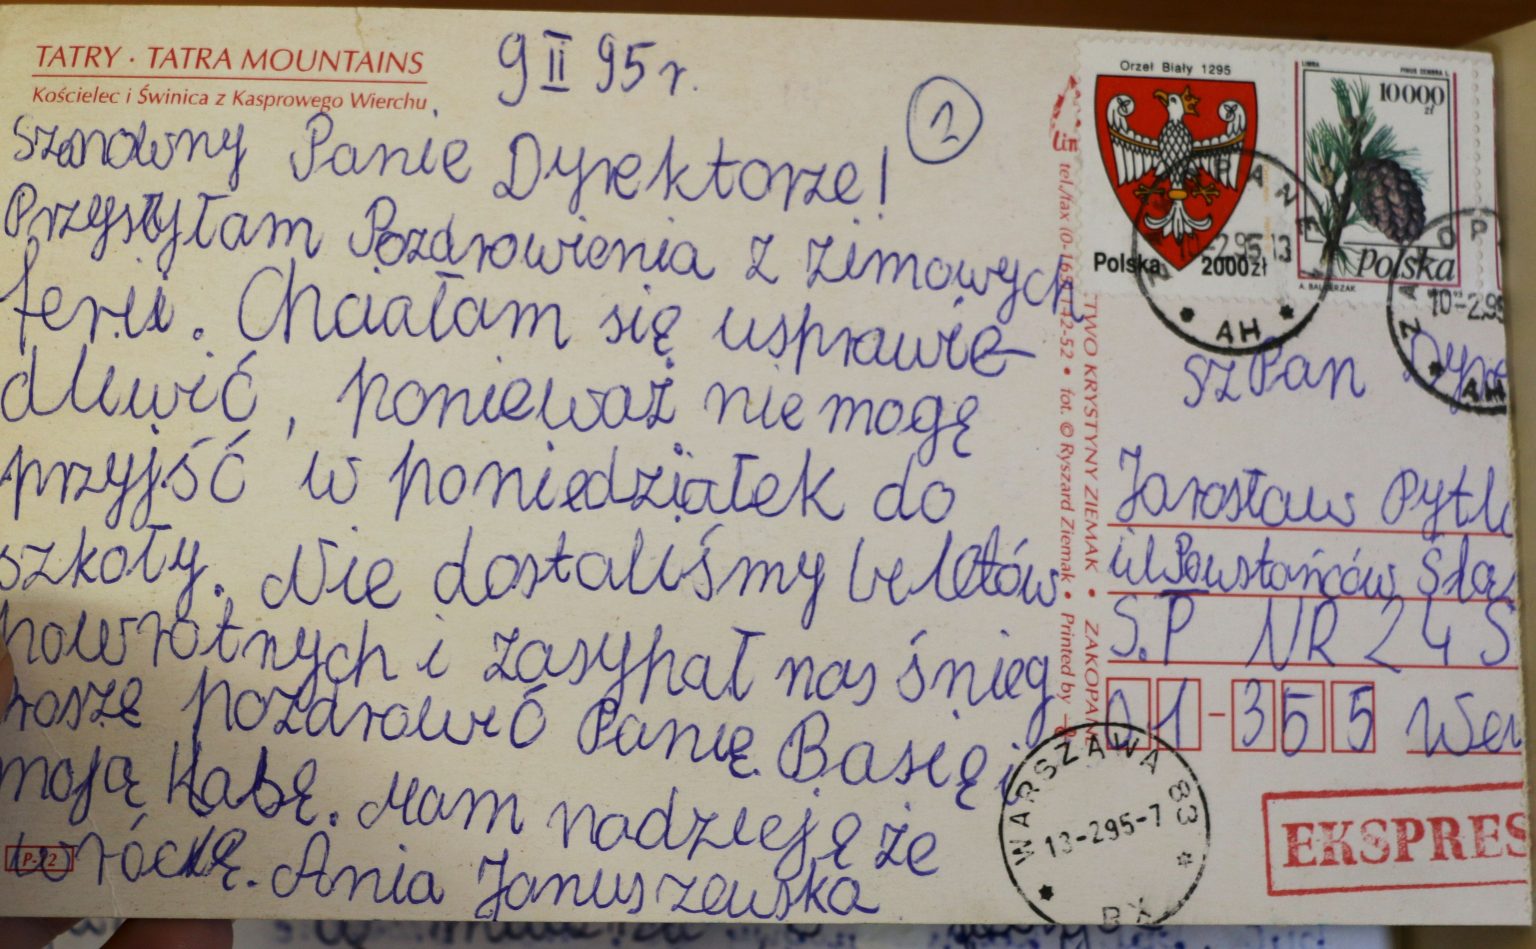 TATRY · TATRA MOUNTAINS
Kościelec i Świnica z Kasprowego Wierchu
9 II 95 r.
2
Szanowny Panie Dyrektorze!
Przysyłam Pozdrowienia z zimowych
ferii. Chciałam się usprawie-
dliwić, ponieważ nie mogę
przyjść w poniedziałek do
szkoły. Nie dostaliśmy biletów
powrotnych i zasypał nas śnieg
roszę pozdrowić Panię Basię i
moją klasę. Mam nadzieję że
wrócę. Ania Januszewska
P-22
Orzeł Biały 1295
Polska 2000 zł
LIMBA PINUS CEMBRA L.
10 000 zł
polska
A. BALCERZAK
ZAKOPANE
-2.95-13
* AH *
ZAKOP
10-2.95
* AH
lin
tel./fax (0-165) 12-52 • fot. © Ryszard Ziemak • Printed by
TWO KRYSTYNY ZIEMAK • ZAKOPANE
Sz Pan Dyre
Jarosław Pytl
ul PowstańcówŚlą
S.P NR 24 S
01-355 War
WARSZAWA 83
13-2.95-7
* BX *
EKSPRES